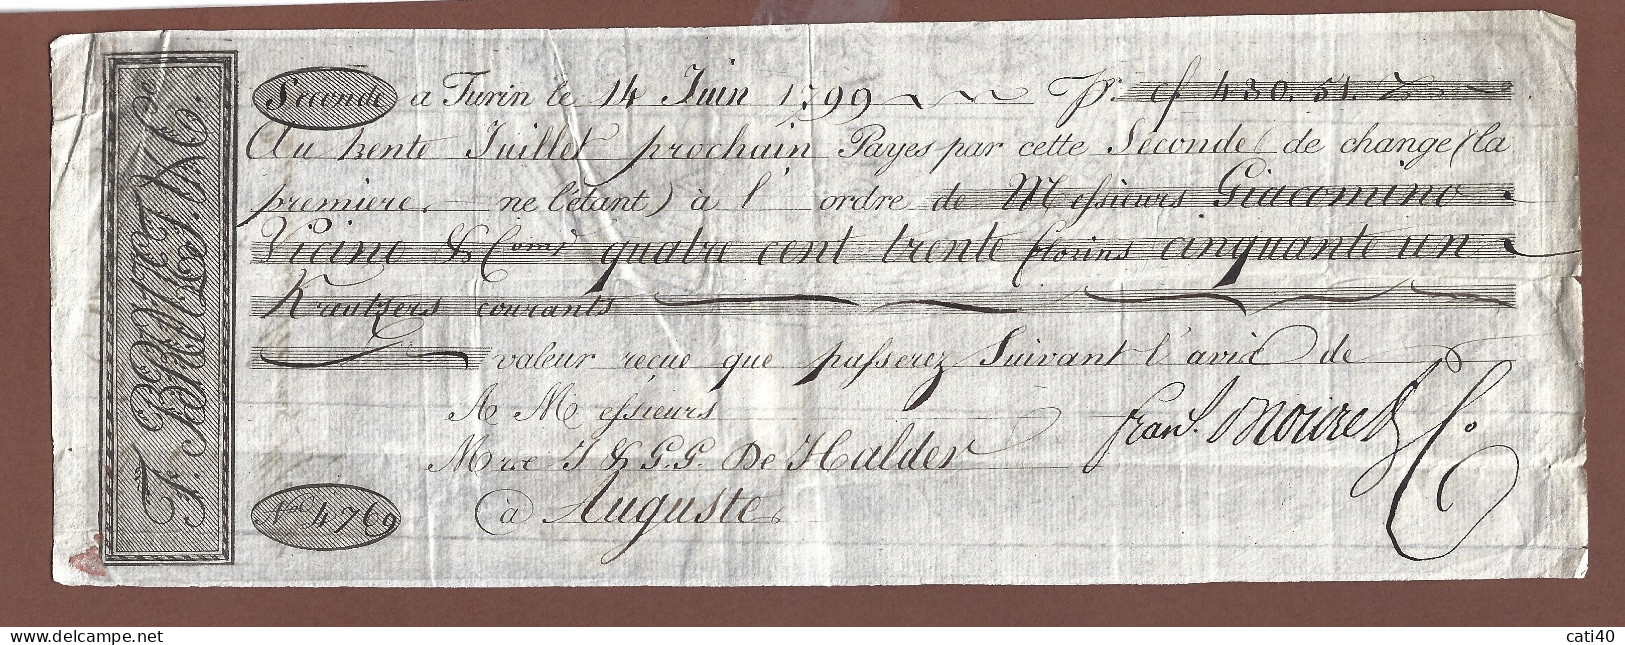 Seconde a Turin le 14 Juin 1799 Pr. cf 430. 51.
Au trente Juillet prochain Payes par cette Seconde de change (la
premiere ne l'étant) à l'ordre de Messieurs Giacomino
Vicino & Comp quatre cent trente florins cinquante un
Krautzers courants
valeur reçue que passerez Suivant l'avis de
A Messieurs
Fran. Mouret & Co
J & G. G. De Halder
à Auguste
No 4769
cati40